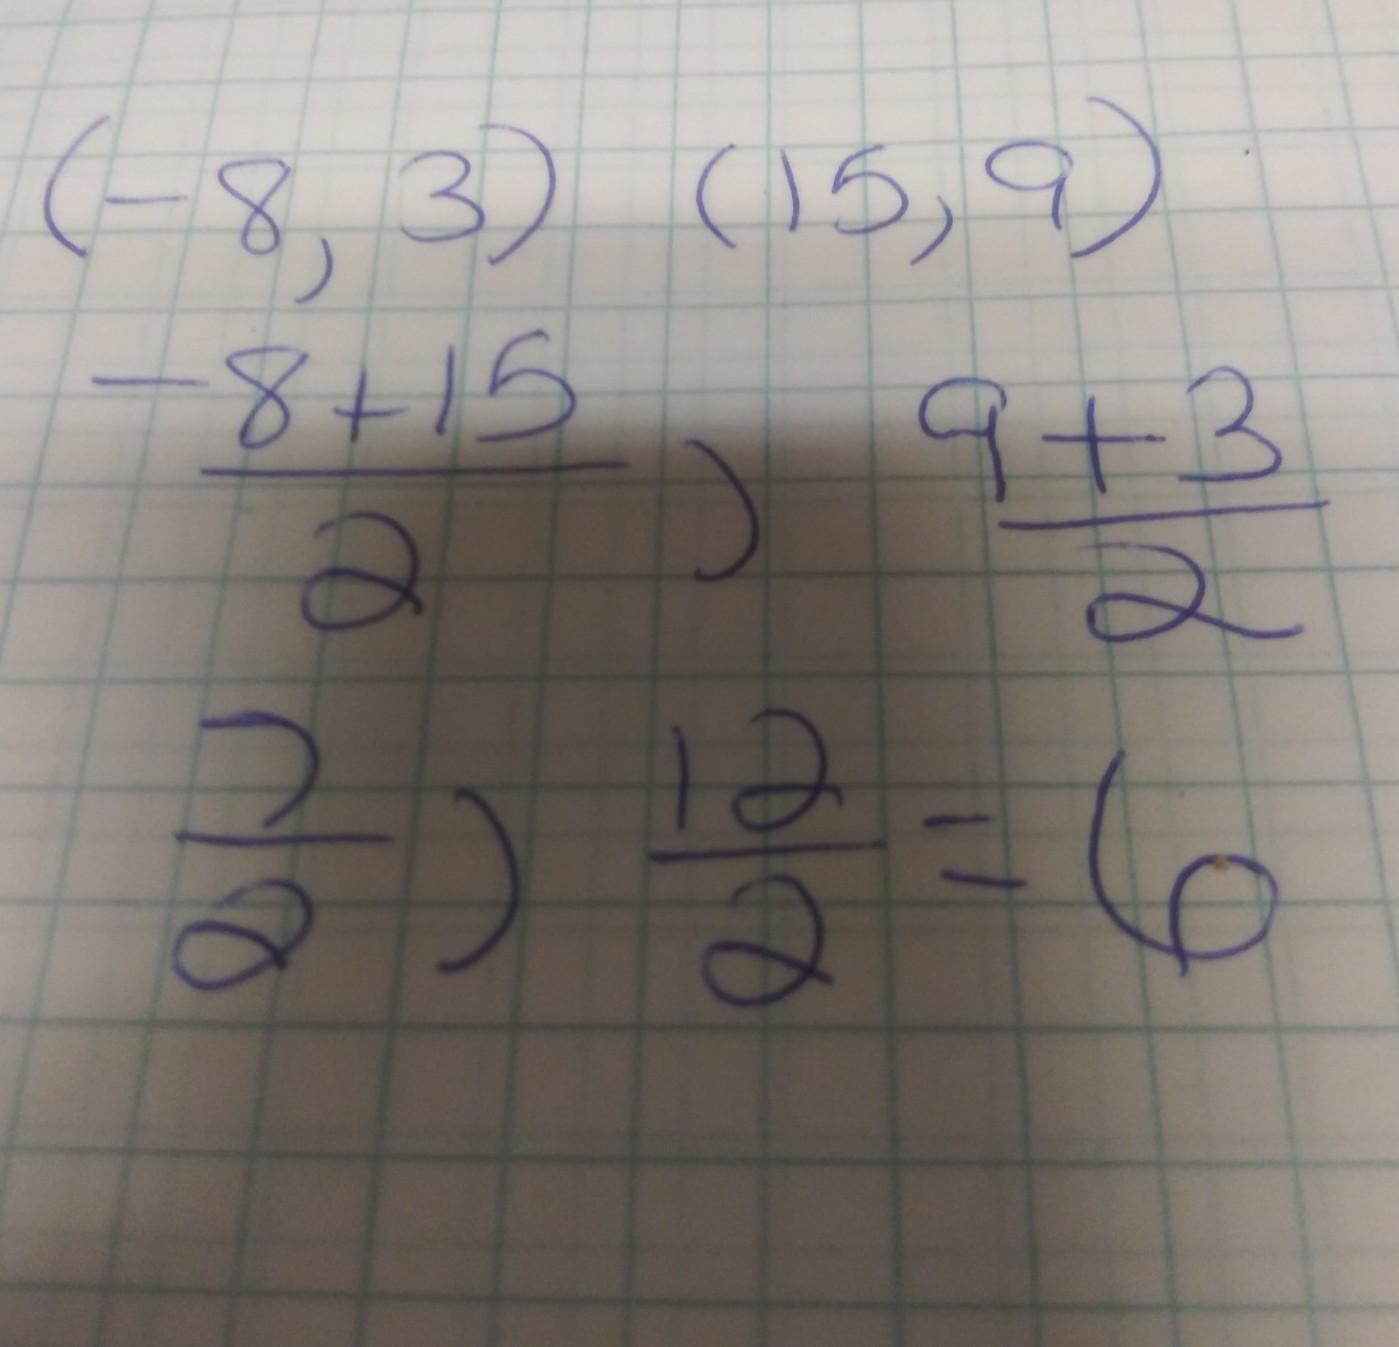 (-8, 3) (15, 9)
-8+15/2 , 9+3/2
7/2 , 12/2 = 6